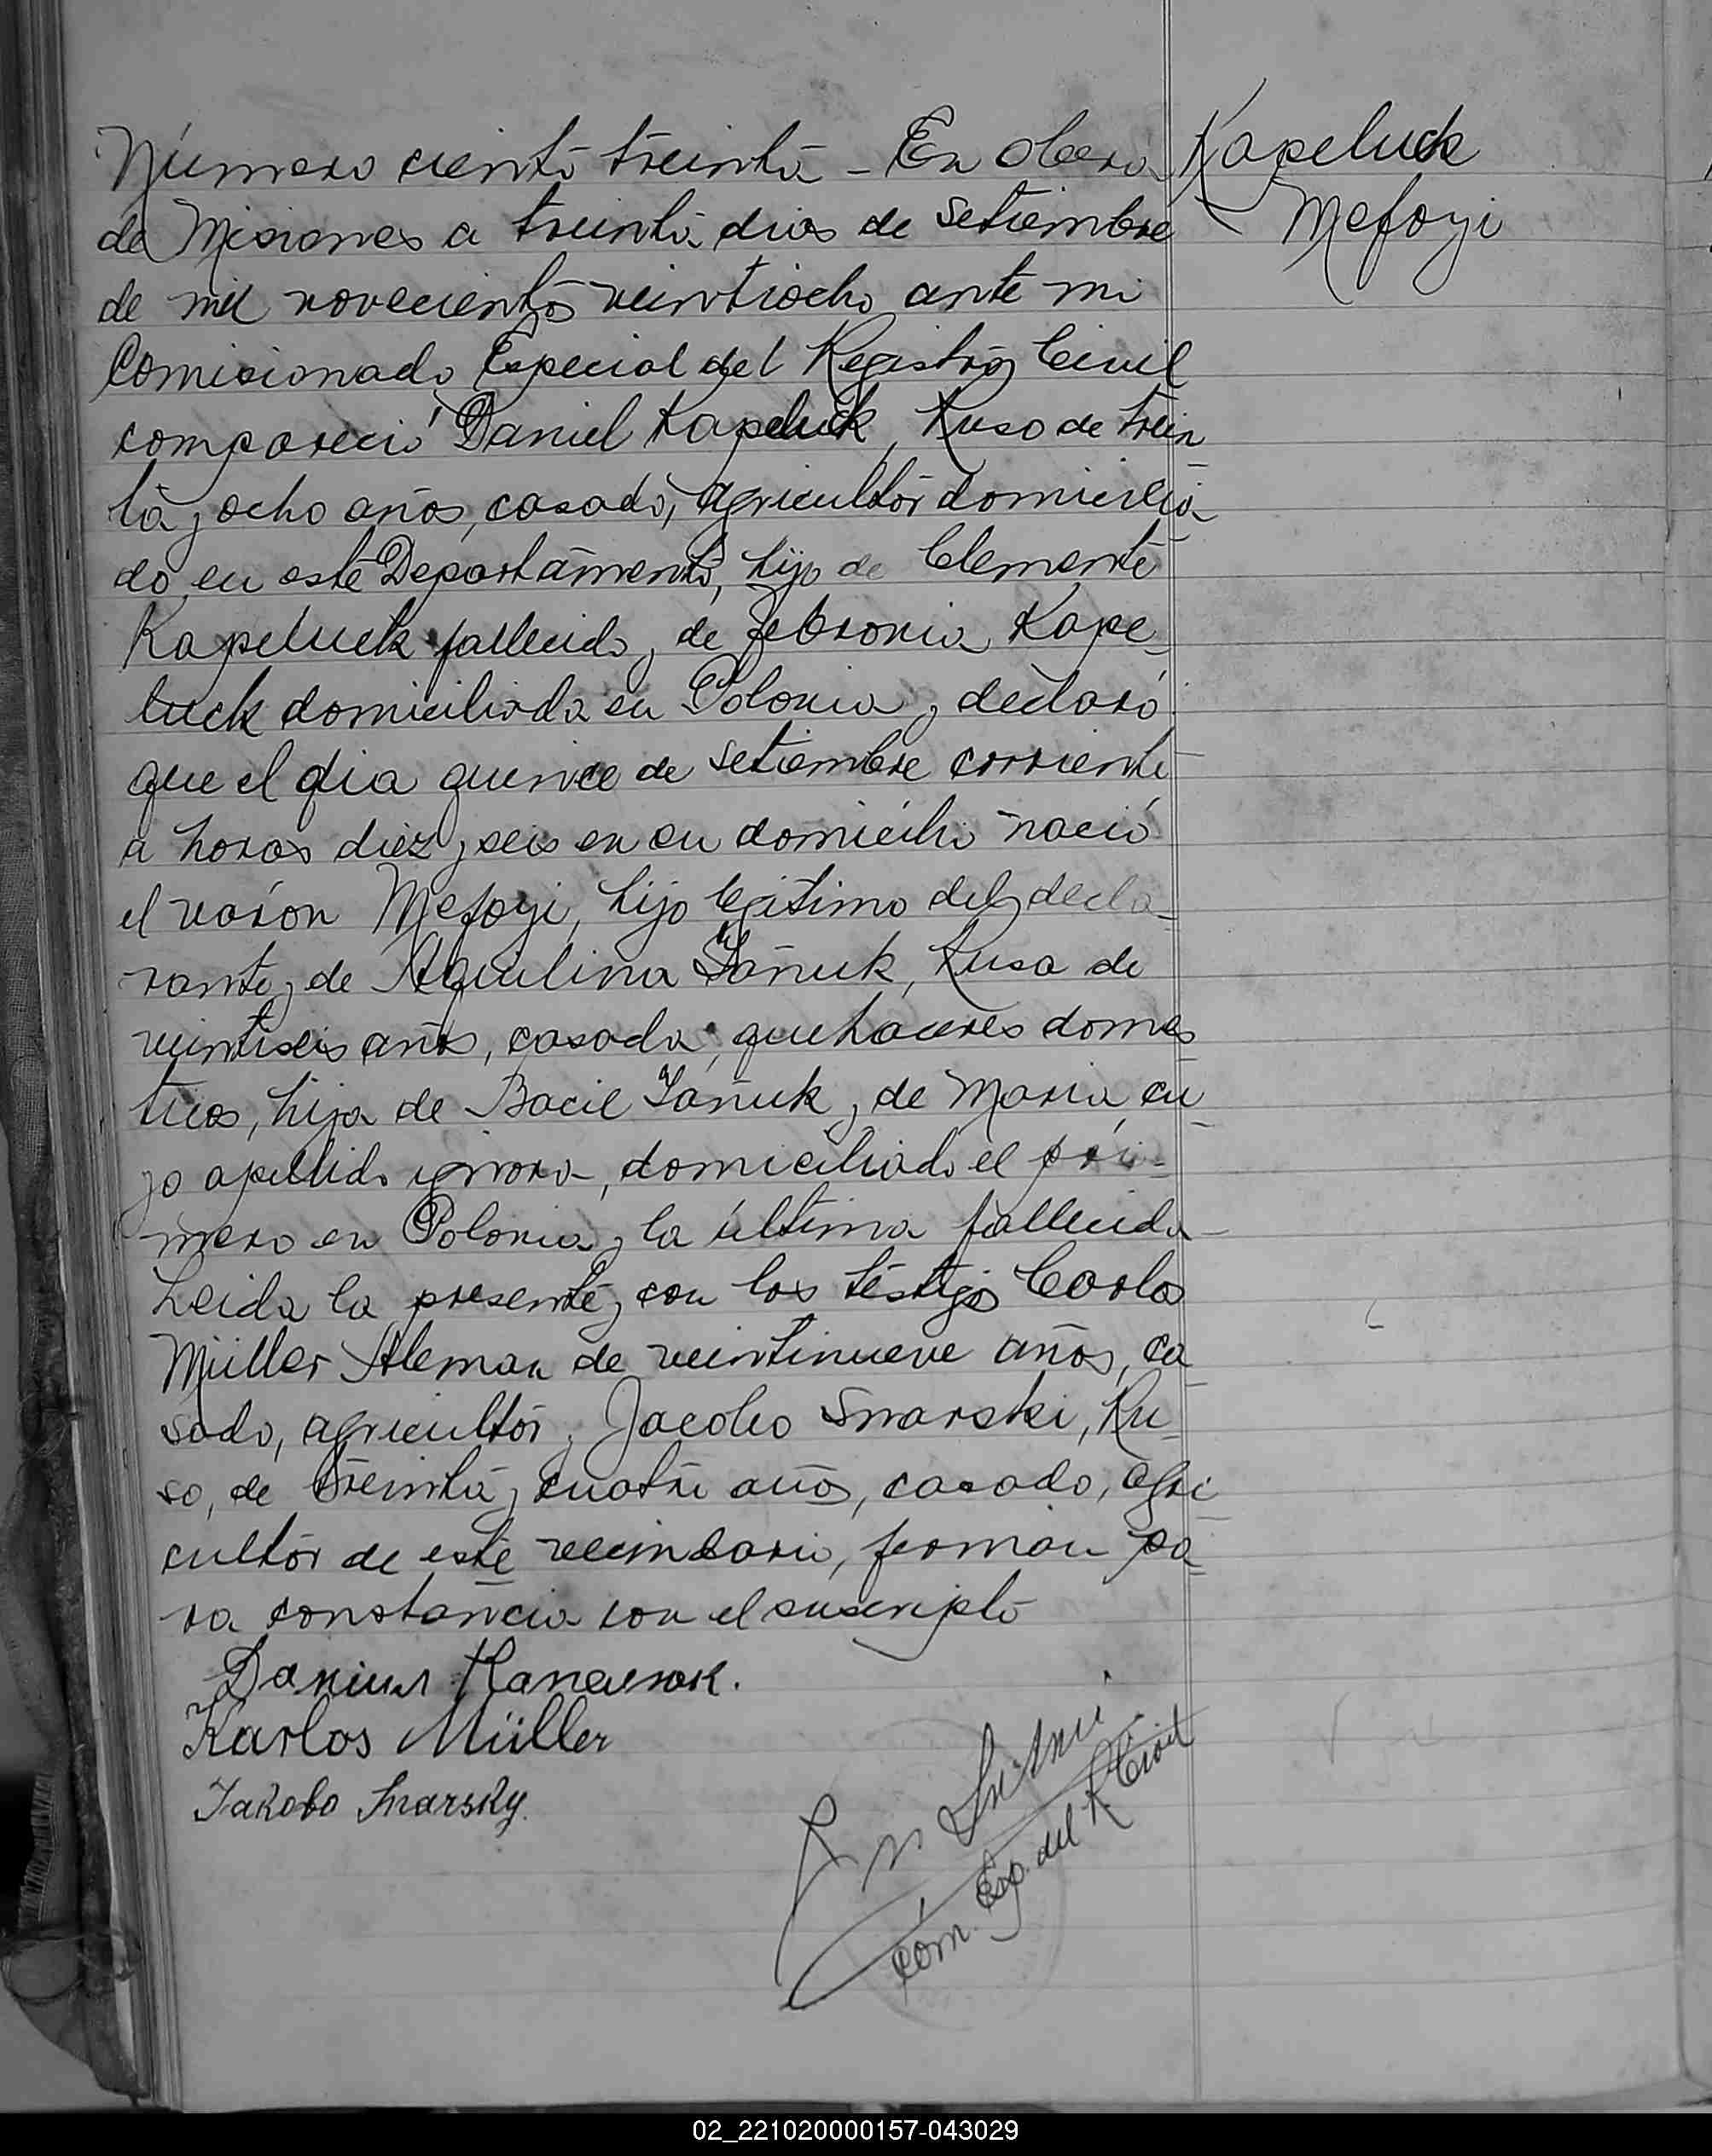 Número ciento treinta - En Oberá
de Misiones a treinta dias de setiembre
de mil novecientos veintiocho ante mi
Comisionado Especial del Registro Civil
compareció Daniel Kapeluck, Ruso de trein
ta y ocho años, casado, agricultor domicilia
do en este Departamento, hijo de Clemente
Kapeluck fallecido y de Febronia Kape
luck domiciliada en Polonia y declaró
que el dia quince de setiembre corriente
a horas diez y seis en su domicilio nació
el varon Mefoyi, hijo legitimo del decla-
rante y de Aquilina Iañuk, Rusa de
veintiseis años, casada, quehaceres domes
ticos, hija de Bacil Iañuk y de Maria cu
yo apellido ignora, domiciliado el pri-
mero en Polonia y la última fallecida
Leida la presente y con los testigos Carlos
Müller Aleman de veintinueve años, ca
sado, agricultor y Jacobo Snarski, Ru
so, de treinta y cuatro años, casado, agri
cultor de este vecindario, firman pa
ra constancia con el suscripto
Kapeluck
Mefoyi
Даниил Капелюк.
Karlos Müller
Jakobo Snarsky.
Com. Esp. del R. Civil
02_221020000157-043029